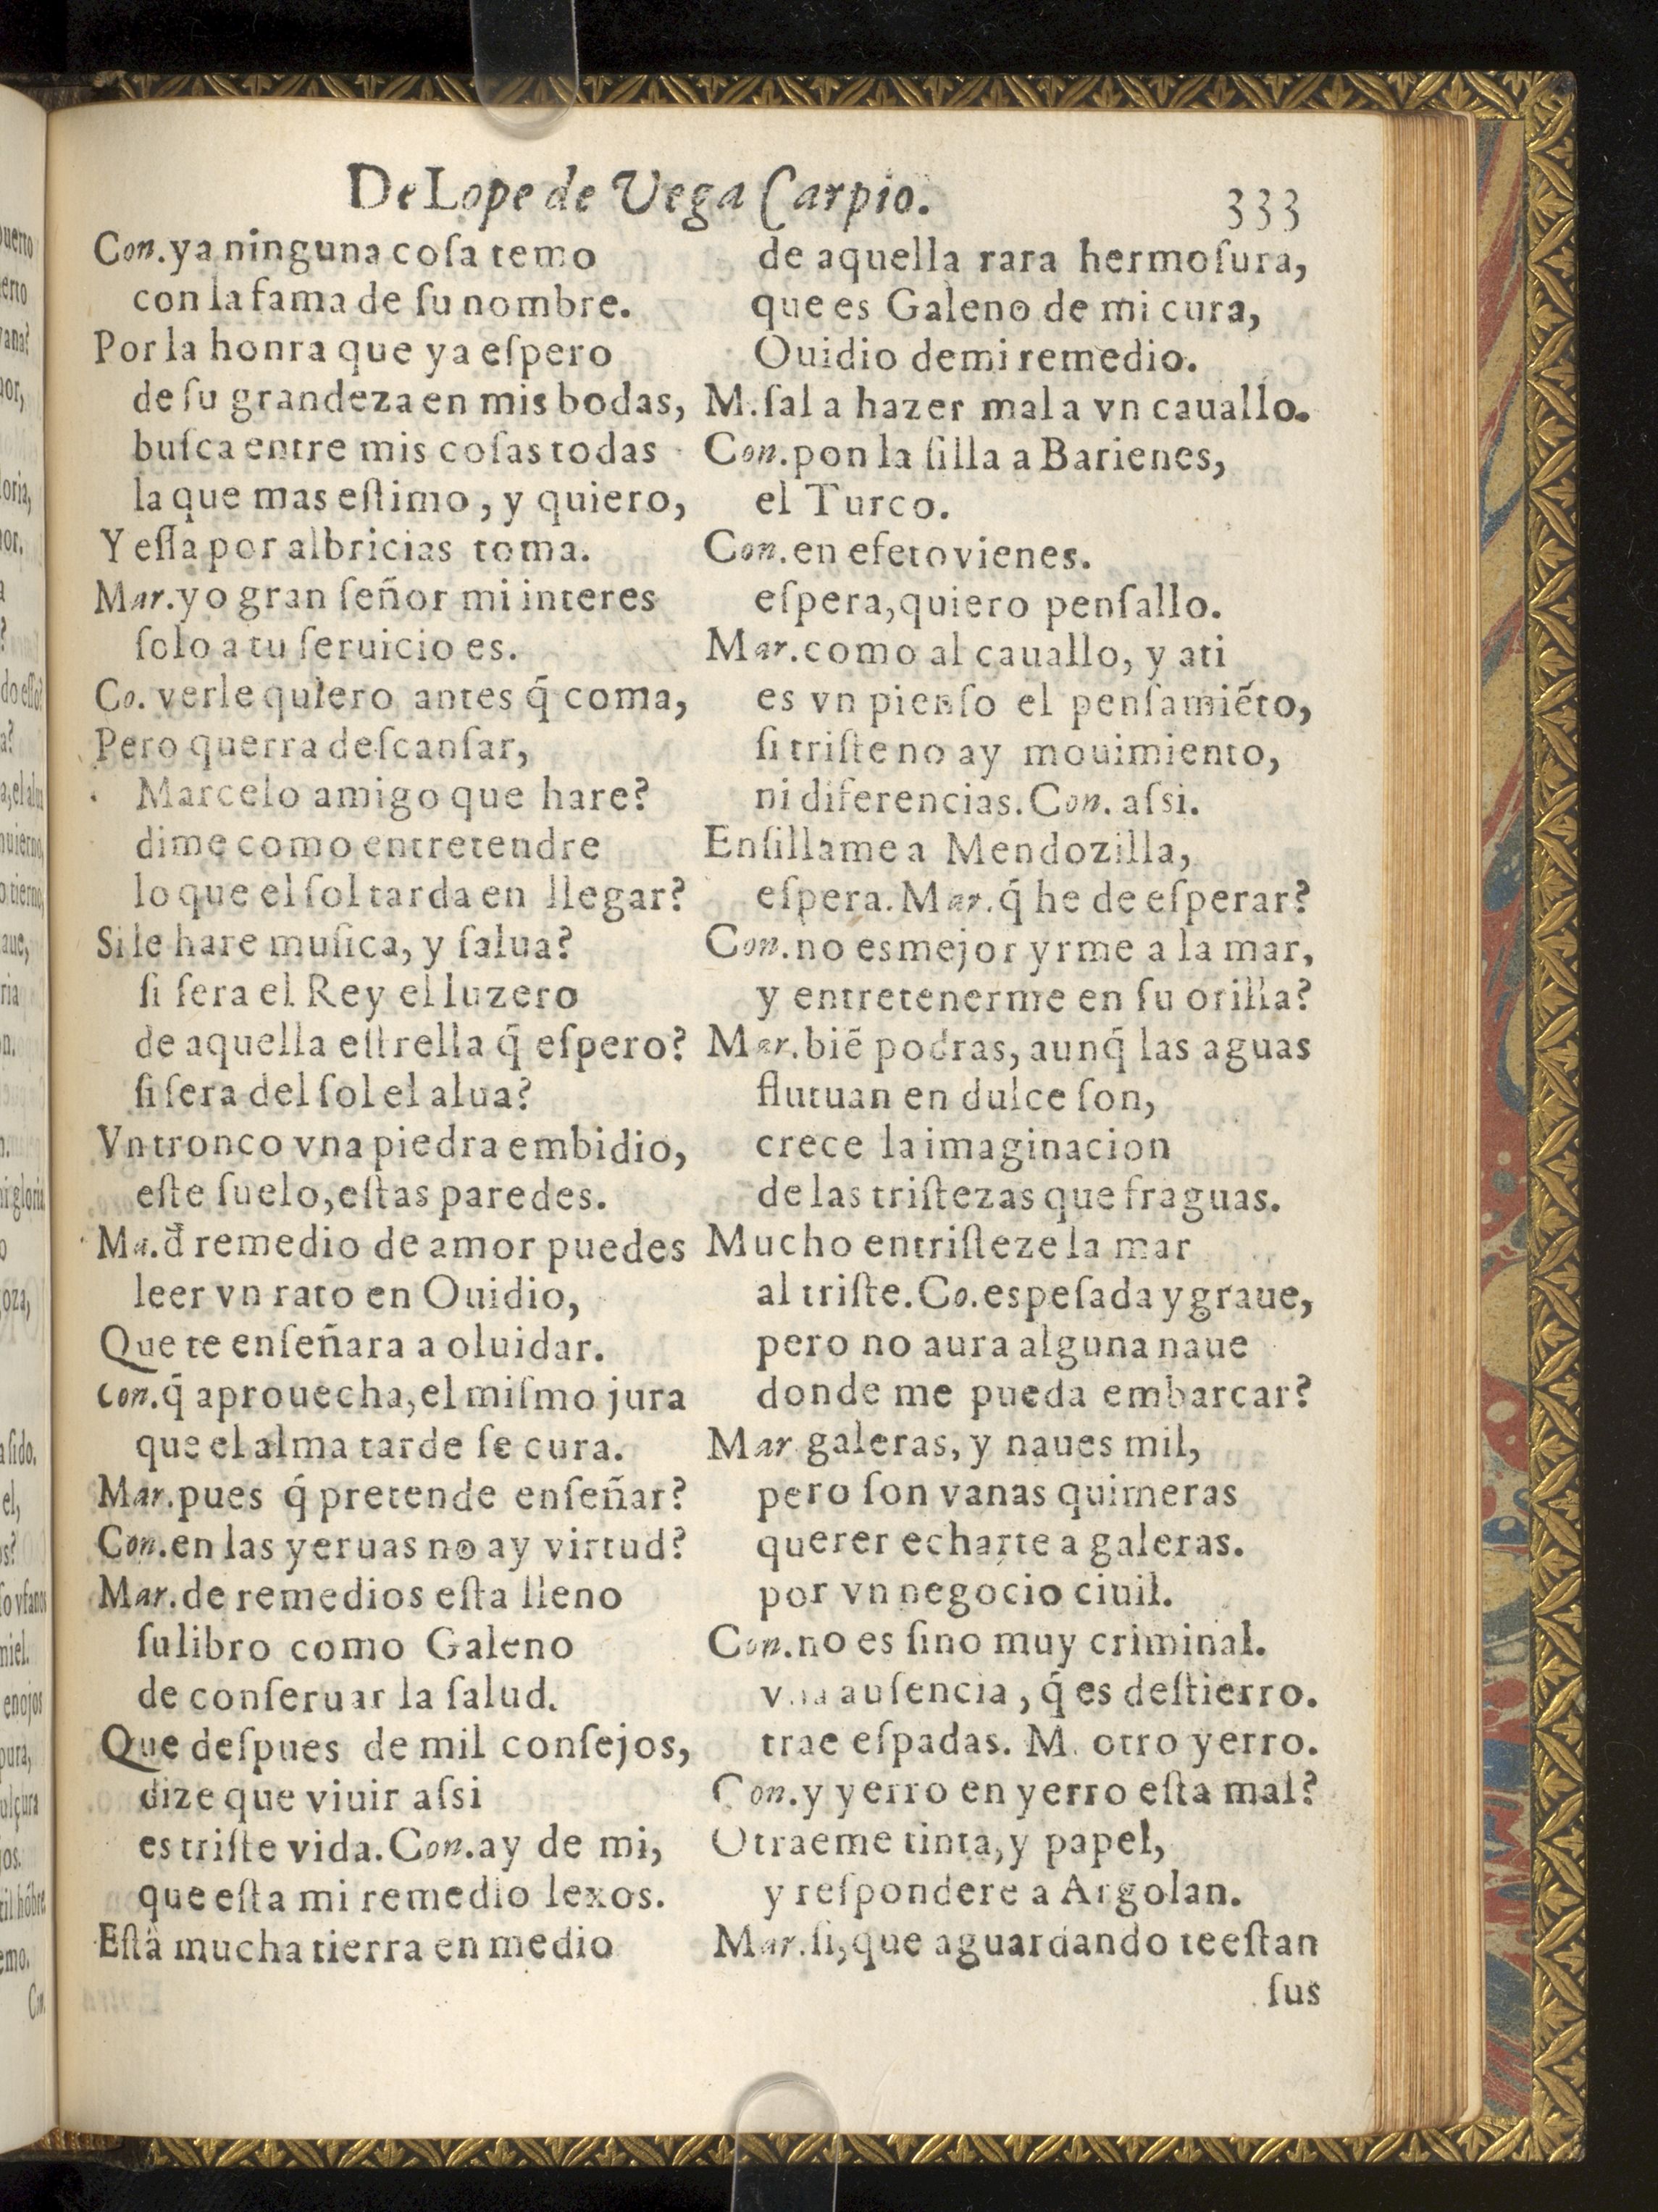 De Lope de Vega Carpio.
333
Con. ya ninguna coſa temo
con la fama de ſu nombre.
Por la honra que ya eſpero
de ſu grandeza en mis bodas,
buſca entre mis coſas todas
la que mas eſtimo, y quiero,
Y eſſa por albricias toma.
Mar. yo gran ſeñor mi interes
ſolo a tu ſeruicio es.
Co. verle quiero antes q̃ coma,
Pero querra deſcanſar,
Marcelo amigo que hare?
dime como entretendre
lo que el ſol tarda en llegar?
Si le hare muſica, y ſalua?
ſi ſera el Rey el luzero
de aquella eſtrella q̃ eſpero?
ſi ſera del ſol el alua?
Vn tronco vna piedra embidio,
eſte ſuelo, eſtas paredes.
Ma. d̃ remedio de amor puedes
leer vn rato en Ouidio,
Que te enſeñara a oluidar.
Con. q̃ aprouecha, el miſmo jura
que el alma tarde ſe cura.
Mar. pues q́ pretende enſeñar?
Con. en las yeruas no ay virtud?
Mar. de remedios eſta lleno
ſu libro como Galeno
de conſeruar la ſalud.
Que deſpues de mil conſejos,
dize que viuir aſsi
es triſte vida. Con. ay de mi,
que eſta mi remedio lexos.
Eſtà mucha tierra en medio
de aquella rara hermoſura,
que es Galeno de mi cura,
Ouidio de mi remedio.
M. ſal a hazer mal a vn cauallo.
Con. pon la ſilla a Barienes,
el Turco.
Con. en efeto vienes.
eſpera, quiero penſallo.
Mar. como al cauallo, y a ti
es vn pienſo el penſamiẽto,
ſi triſte no ay mouimiento,
ni diferencias. Con. aſsi.
Enſillame a Mendozilla,
eſpera. Mar. q́ he de eſperar?
Con. no es mejor yrme a la mar,
y entretenerme en ſu orilla?
Mar. biẽ podras, aunq́ las aguas
flutuan en dulce ſon,
crece la imaginacion
de las triſtezas que fraguas.
Mucho entriſteze la mar
al triſte. Co. es peſada y graue,
pero no aura alguna naue
donde me pueda embarcar?
Mar galeras, y naues mil,
pero ſon vanas quimeras
querer echarte a galeras.
por vn negocio ciuil.
Con. no es ſino muy criminal.
vna auſencia, q́ es deſtierro.
trae eſpadas. M. otro yerro.
Con. y yerro en yerro eſta mal?
Otraeme tinta, y papel,
y reſpondere a Argolan.
Mar. ſi, que aguardando te eſtan
ſus